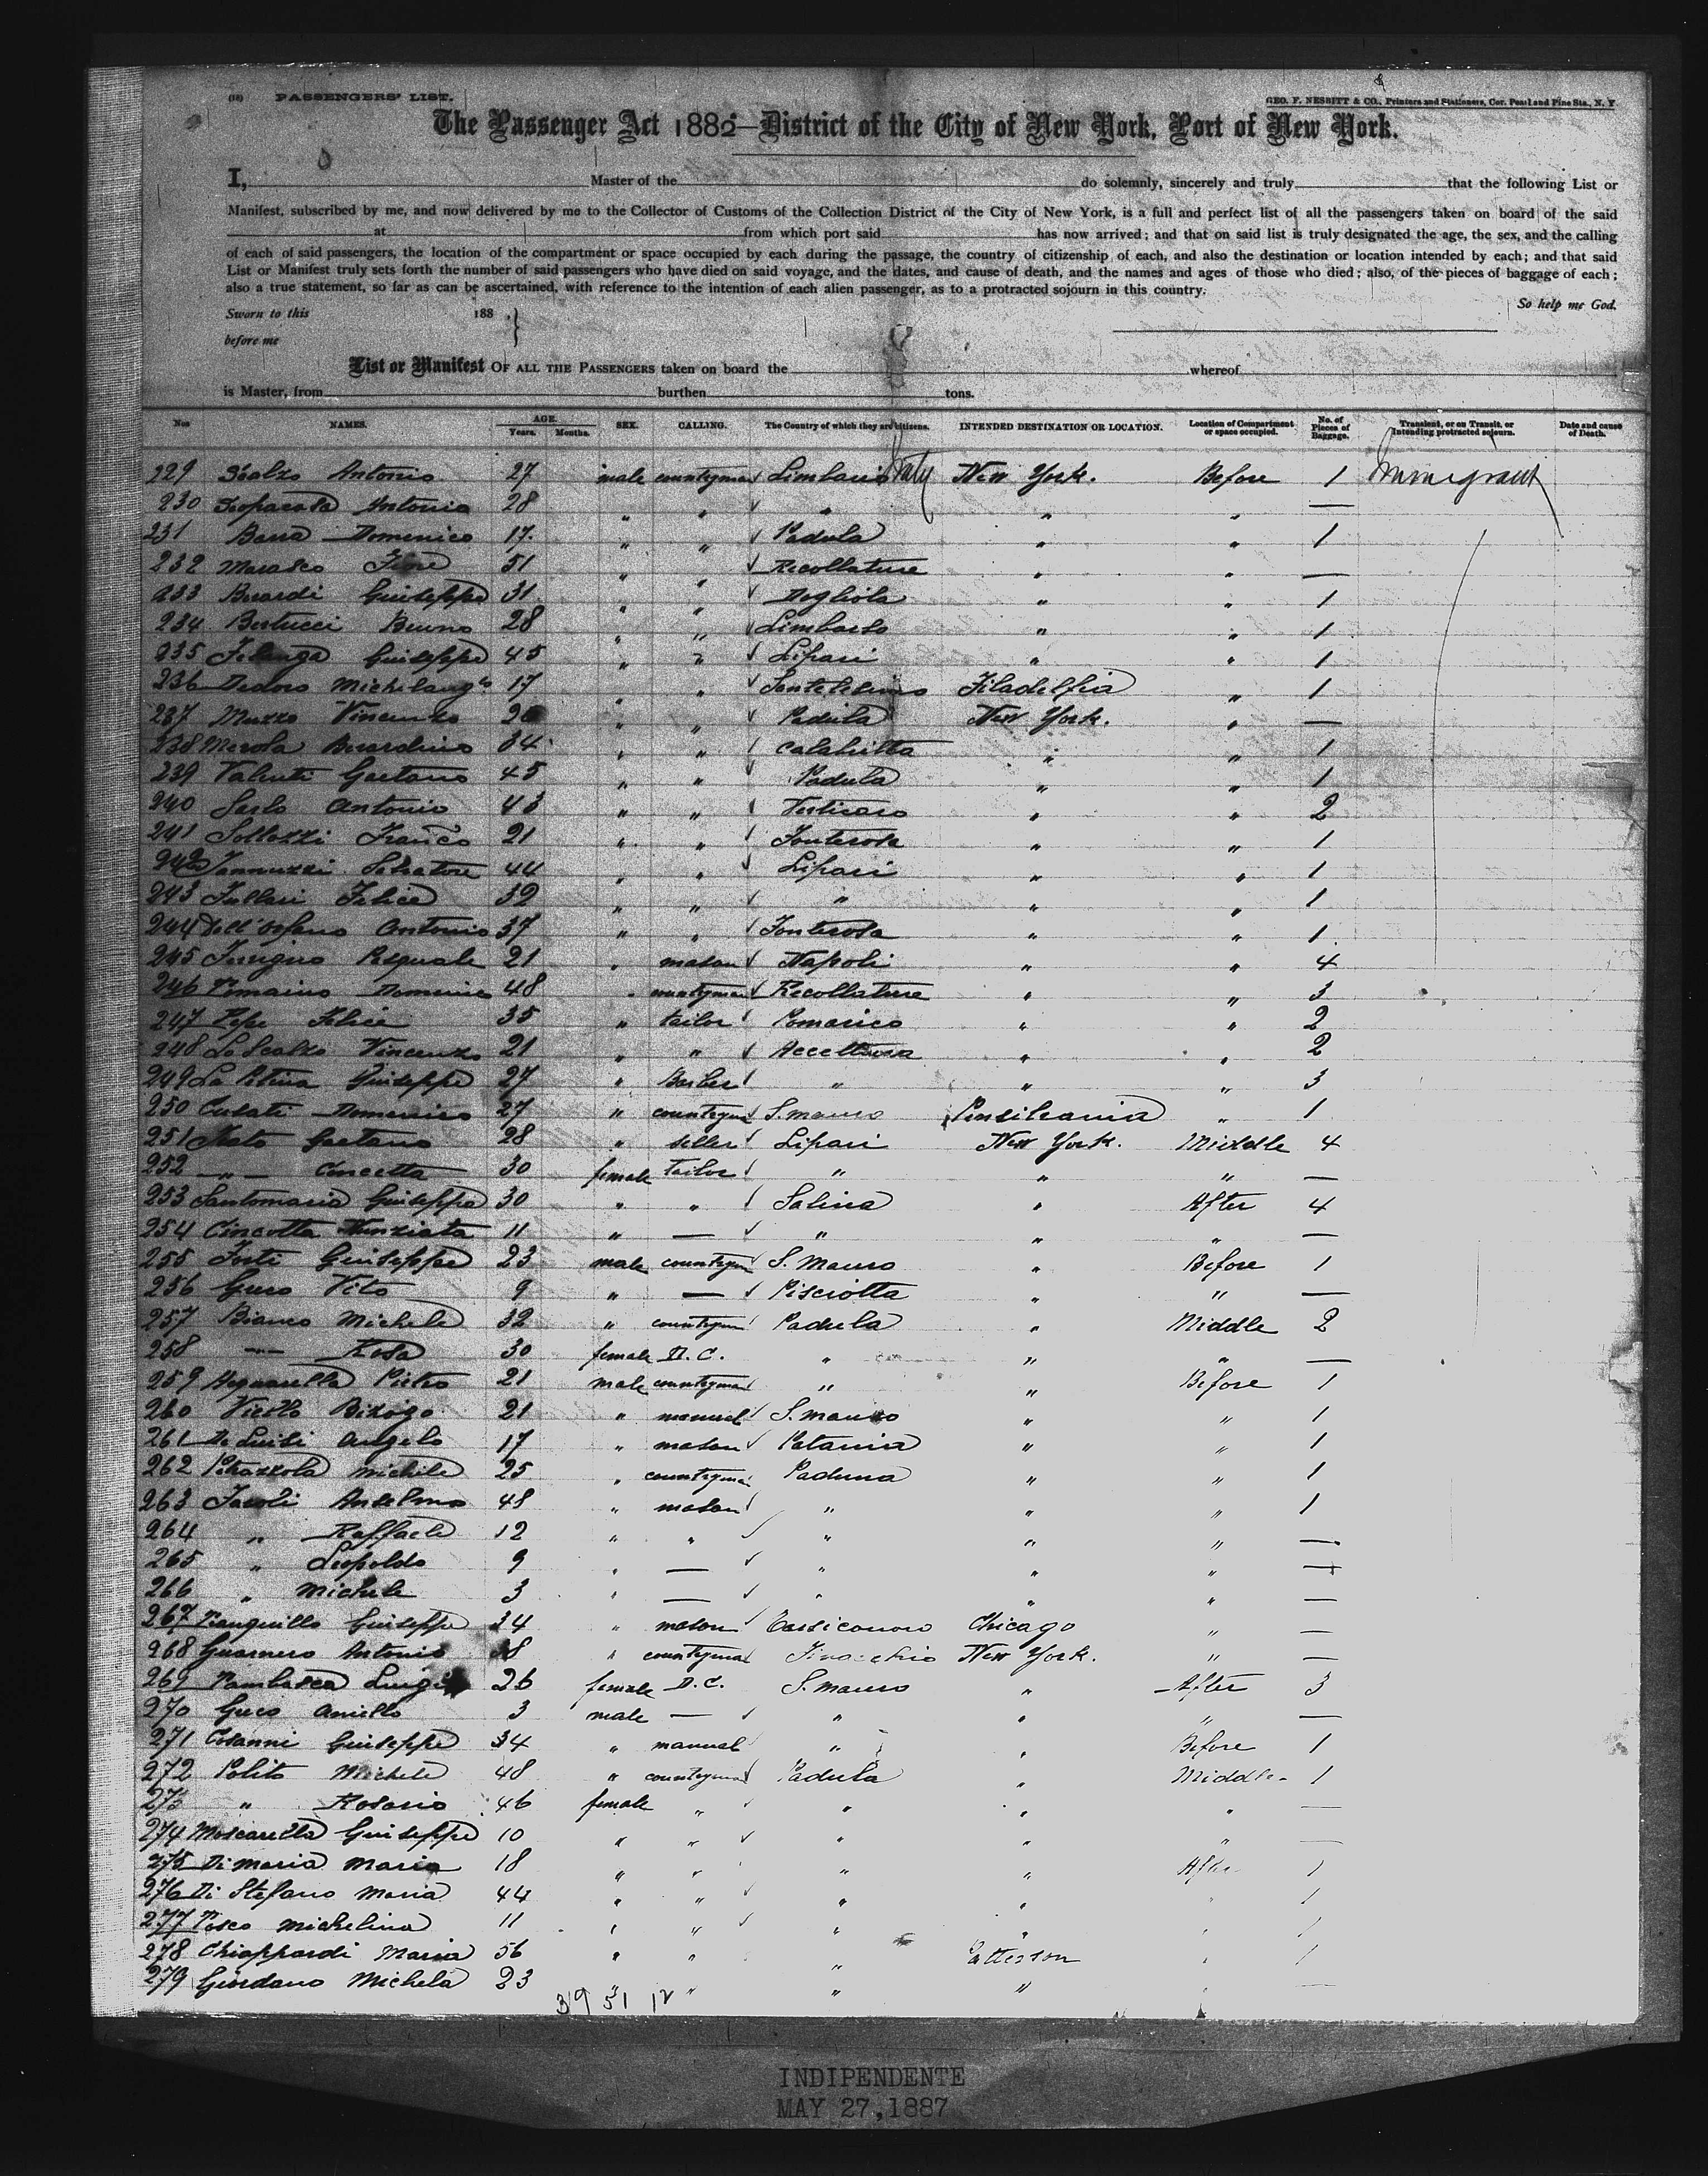 (18) PASSENGERS' LIST.
GEO. F. NESBITT & CO., Printers and Stationers, Cor. Pearl and Pine Sts., N. Y.
The Passenger Act 1882—District of the City of New York, Port of New York.
I, Master of the do solemnly, sincerely and truly that the following List or
Manifest, subscribed by me, and now delivered by me to the Collector of Customs of the Collection District of the City of New York, is a full and perfect list of all the passengers taken on board of the said
at from which port said has now arrived; and that on said list is truly designated the age, the sex, and the calling
of each of said passengers, the location of the compartment or space occupied by each during the passage, the country of citizenship of each, and also the destination or location intended by each; and that said
List or Manifest truly sets forth the number of said passengers who have died on said voyage, and the dates, and cause of death, and the names and ages of those who died; also, of the pieces of baggage of each;
also a true statement, so far as can be ascertained, with reference to the intention of each alien passenger, as to a protracted sojourn in this country.
So help me God.
Sworn to this 188
before me
List or Manifest OF ALL THE PASSENGERS taken on board the whereof
is Master, from burthen tons.
Nos NAMES. AGE. Years. Months. SEX. CALLING. The Country of which they are citizens. INTENDED DESTINATION OR LOCATION. Location of Compartment or space occupied. No. of Pieces of Baggage. Transient, or on Transit, or Intending protracted sojourn. Date and cause of Death.
229 Scalzo Antonio 27 male countryman Italy New York. Before 1 Immigrant
230 Antonio 28 " " " " " —
231 Barra Domenico 17 " " Padula " " 1
232 Marasco Fiore 51 " " Recollature " " —
233 Berardi Guiseppe 31 " " " " 1
234 Bertucci Bruno 28 " " " " 1
235 Guiseppe 45 " " Lipari " " 1
236 Dedoro Michelang'lo 17 " " Filadelfia " 1
237 Muzzo Vincenzo " " Padula New York. " —
238 Merola Berardino 34 " " Calabritta " " 1
239 Valenti Gaetano 45 " " Padula " " 1
240 Sarlo Antonio 43 " " Verbicaro " " 2
241 Sollazzi Franc'o 21 " " Fonterosa " " 1
242 Iannuzzi Salvatore 44 " " Lipari " " 1
243 Felice 32 " " " " " 1
244 Dell'Orfano Antonio 37 " " Fonterosa " " 1
245 Ferrigno Pasquale 21 " mason Napoli " " 4
246 Domenico 48 " countryman Recollature " " 3
247 Pepe Felice 35 " tailor Pomarico " " 2
248 Lo Scalzo Vincenzo 21 " " Accettura " " 2
249 La Petina Guiseppe 27 " Barber " " " 3
250 Cusati Domenico 27 " countryman S. Mauro Pensilvania " 1
251 Gaetano 28 " seller Lipari New York. Middle 4
252 — " — Concetta 30 female Tailor " " " —
253 Santomaria Guiseppa 30 " " Salina " After 4
254 Cincotta Nunziata 11 " — " " " —
255 Forte Guiseppe 23 male countryman S. Mauro " Before 1
256 Vito 9 " — Pisciotta " " —
257 Bianco Michele 32 " countryman Padula " Middle 2
258 — " — Rosa 30 female D. C. " " " —
259 Acquarella Pietro 21 male countryman " " Before 1
260 Viello 21 " manual S. Mauro " " 1
261 De Luisi Angelo 17 " mason Catania " " 1
262 Petrazzola Michele 25 " countryman Paduna " " 1
263 Iacoli Anselmo 48 " mason " " " 1
264 " Raffaele 12 " " " " " —
265 " Leopoldo 9 " — " " " —
266 " Michele 3 " — " " " —
267 Tranquillo Guiseppe 34 " mason Chicago " —
268 Guarnero Antonio 38 " countryman New York. " —
269 Luigia 26 female D. C. S. Mauro " After 3
270 Greco Aniello 3 male — " " " —
271 Cosanni Guiseppe 34 " manual " " Before 1
272 Polito Michele 48 " countryman Padula " Middle 1
273 " Rosario 46 female " " " " —
274 Moscarella Guiseppe 10 " " " " " —
275 Di Maria Maria 18 " " " " After 1
276 Di Stefano Maria 44 " " " " " 1
277 Tosco Michelina 11 " " " " " 1
278 Chiappardi Maria 56 " " " Patterson " 1
279 Giordano Michela 23 " " " " " —
39 51 12
INDIPENDENTE
MAY 27, 1887